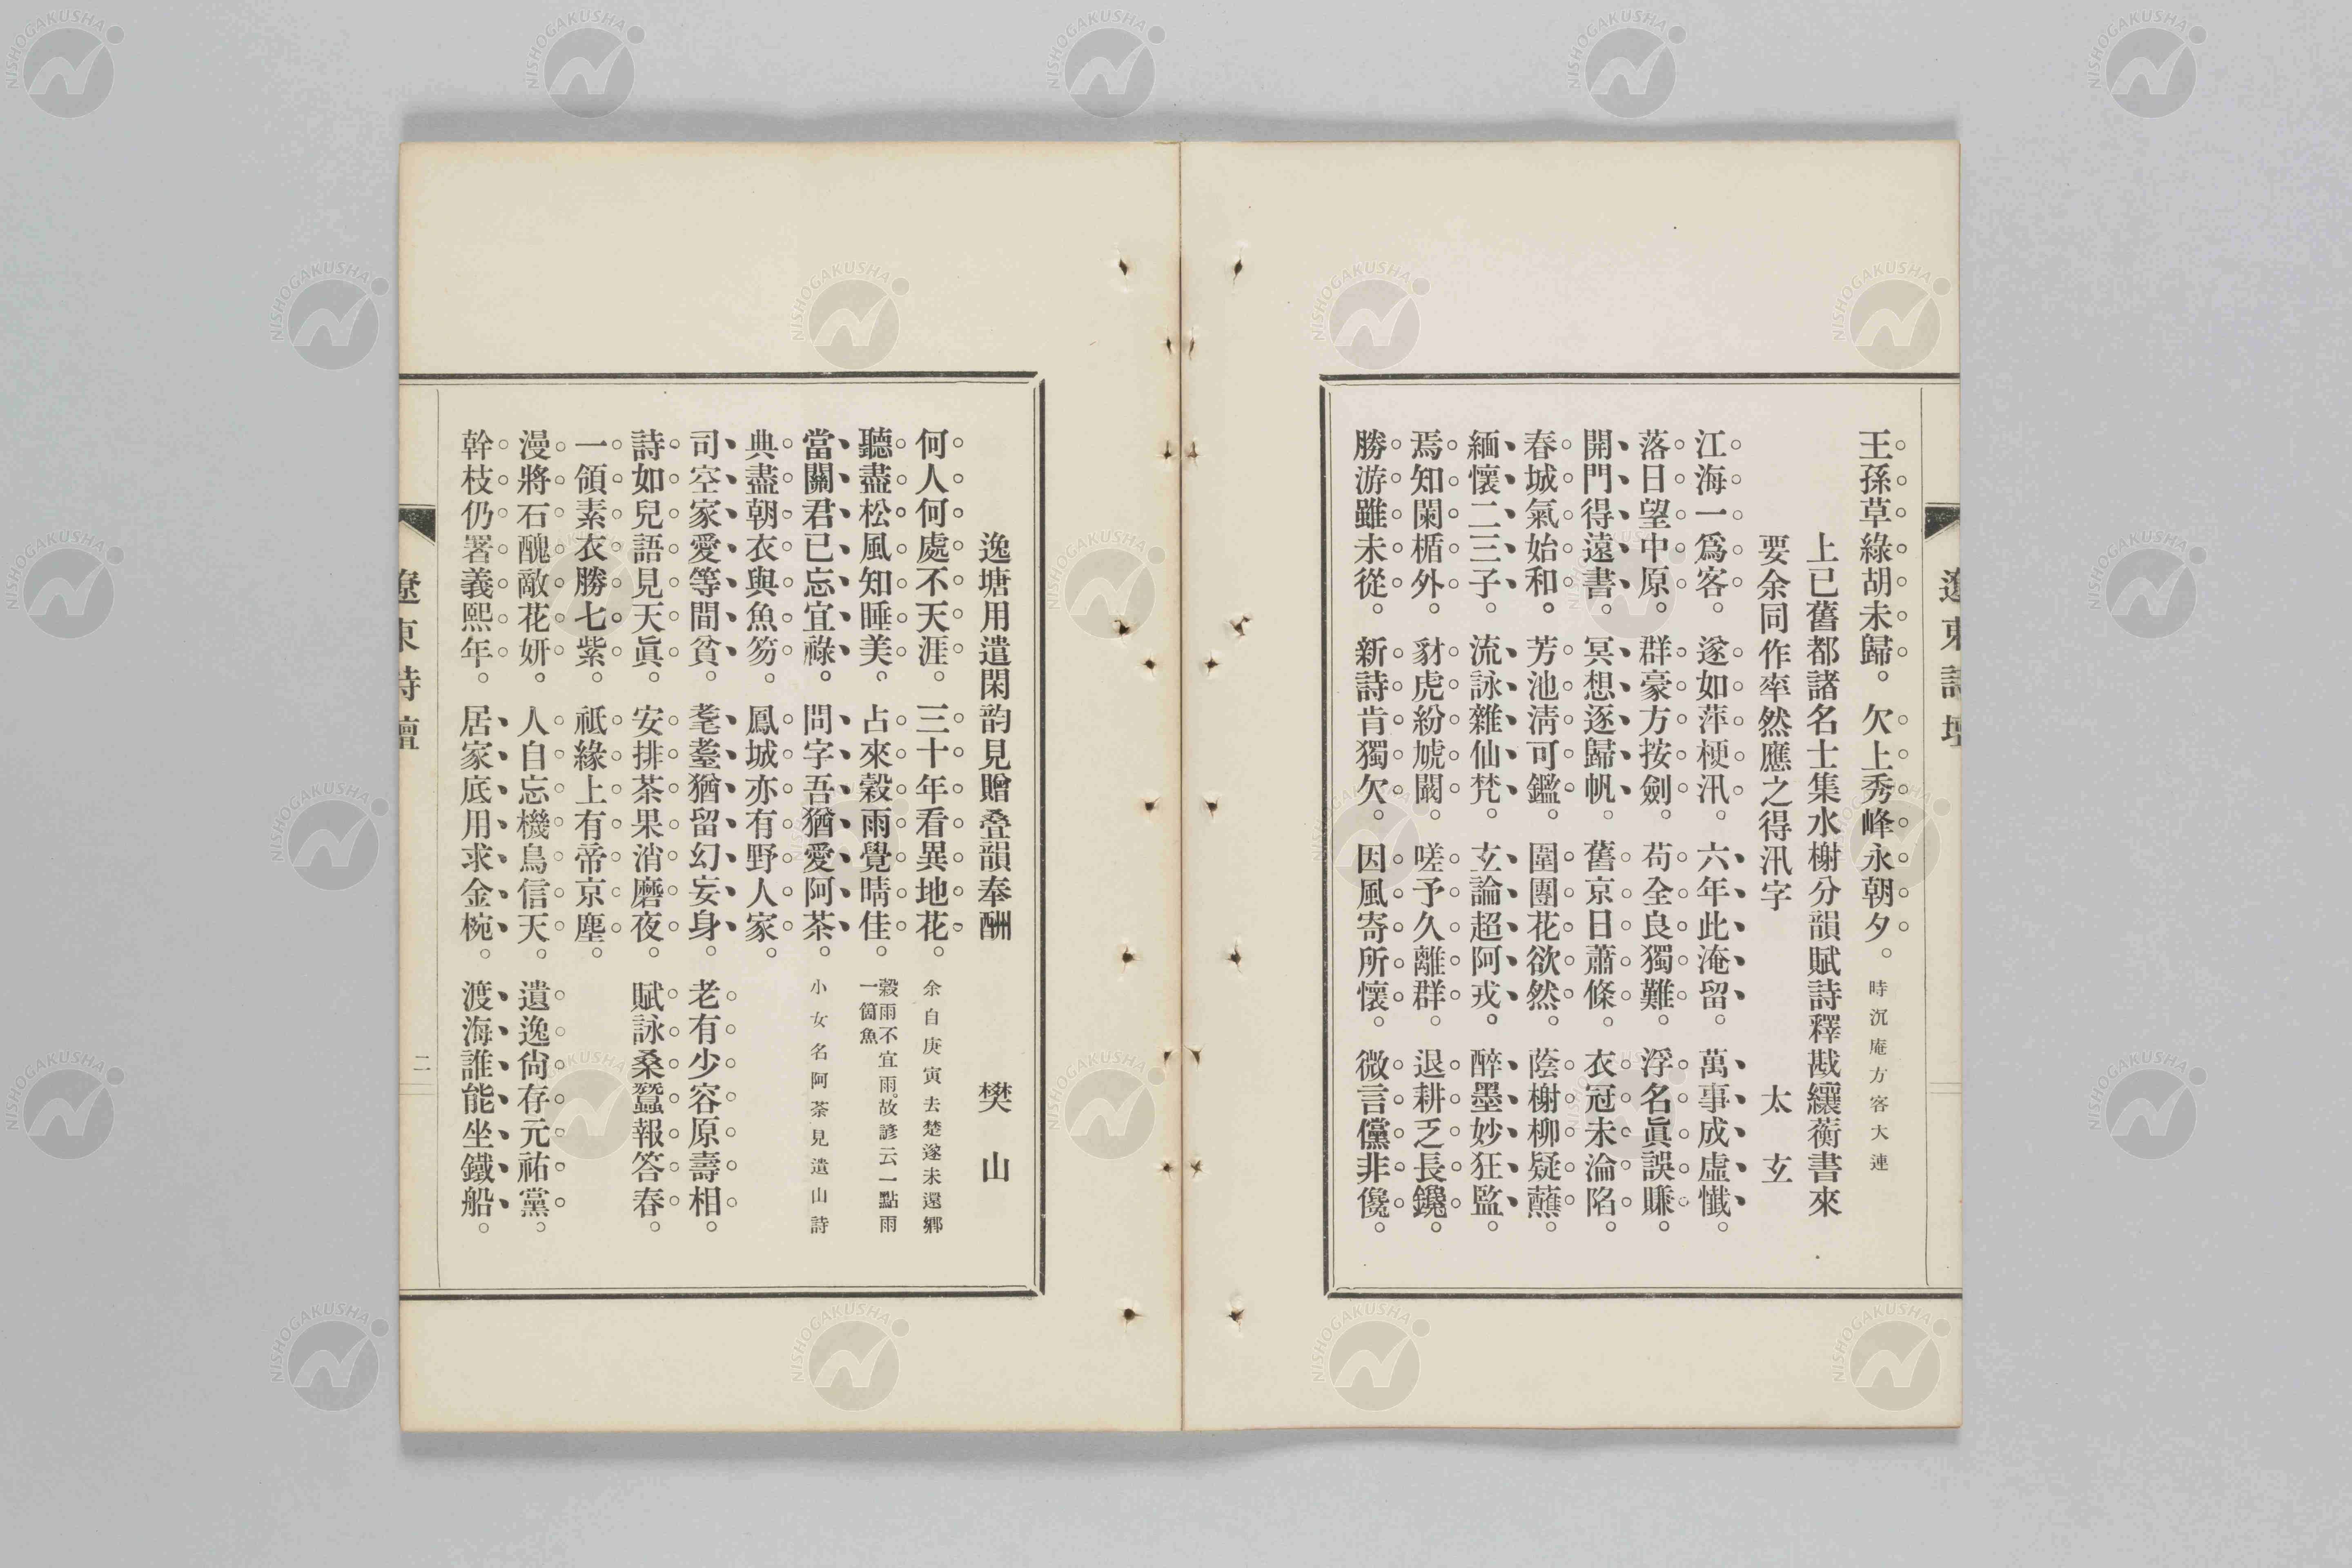 遼東詩壇
王孫草綠胡未歸。欠上秀峰永朝夕。時沉庵方客大連
上巳舊都諸名士集水榭分韻賦詩釋戡纕蘅書來
要余同作率然應之得汎字　太玄
江海一爲客。遂如萍梗汎。六年此淹留。萬事成虛懺。
落日望中原。群豪方按劍。苟全良獨難。浮名眞誤賺。
開門得遠書。冥想逐歸帆。舊京日蕭條。衣冠未淪陷。
春城氣始和。芳池清可鑑。圍團花欲然。蔭榭柳疑蘸。
緬懷二三子。流詠雜仙梵。玄論超阿戎。醉墨妙狂監。
焉知闌楯外。豺虎紛虓闞。嗟予久離群。退耕乏長鑱。
勝游雖未從。新詩肯獨欠。因風寄所懷。微言儻非儳。
逸塘用遣閑韵見贈叠韻奉酬　樊山
何人何處不天涯。三十年看異地花。余自庚寅去楚遂未還鄉
聽盡松風知睡美。占來穀雨覺晴佳。穀雨不宜雨。故諺云一點雨一箇魚
當關君已忘宜祿。問字吾猶愛阿茶。小女名阿茶見遺山詩
典盡朝衣與魚笏。鳳城亦有野人家。
司空家愛等間貧。耄耋猶留幻妄身。老有少容原壽相。
詩如兒語見天眞。安排茶果消磨夜。賦詠桑蠶報答春。
一領素衣勝七紫。祗緣上有帝京塵。
漫將石醜敵花妍。人自忘機鳥信天。遺逸尙存元祐黨。
幹枝仍署義熙年。居家底用求金椀。渡海誰能坐鐵船。
遼東詩壇
二
NISHOGAKUSHA